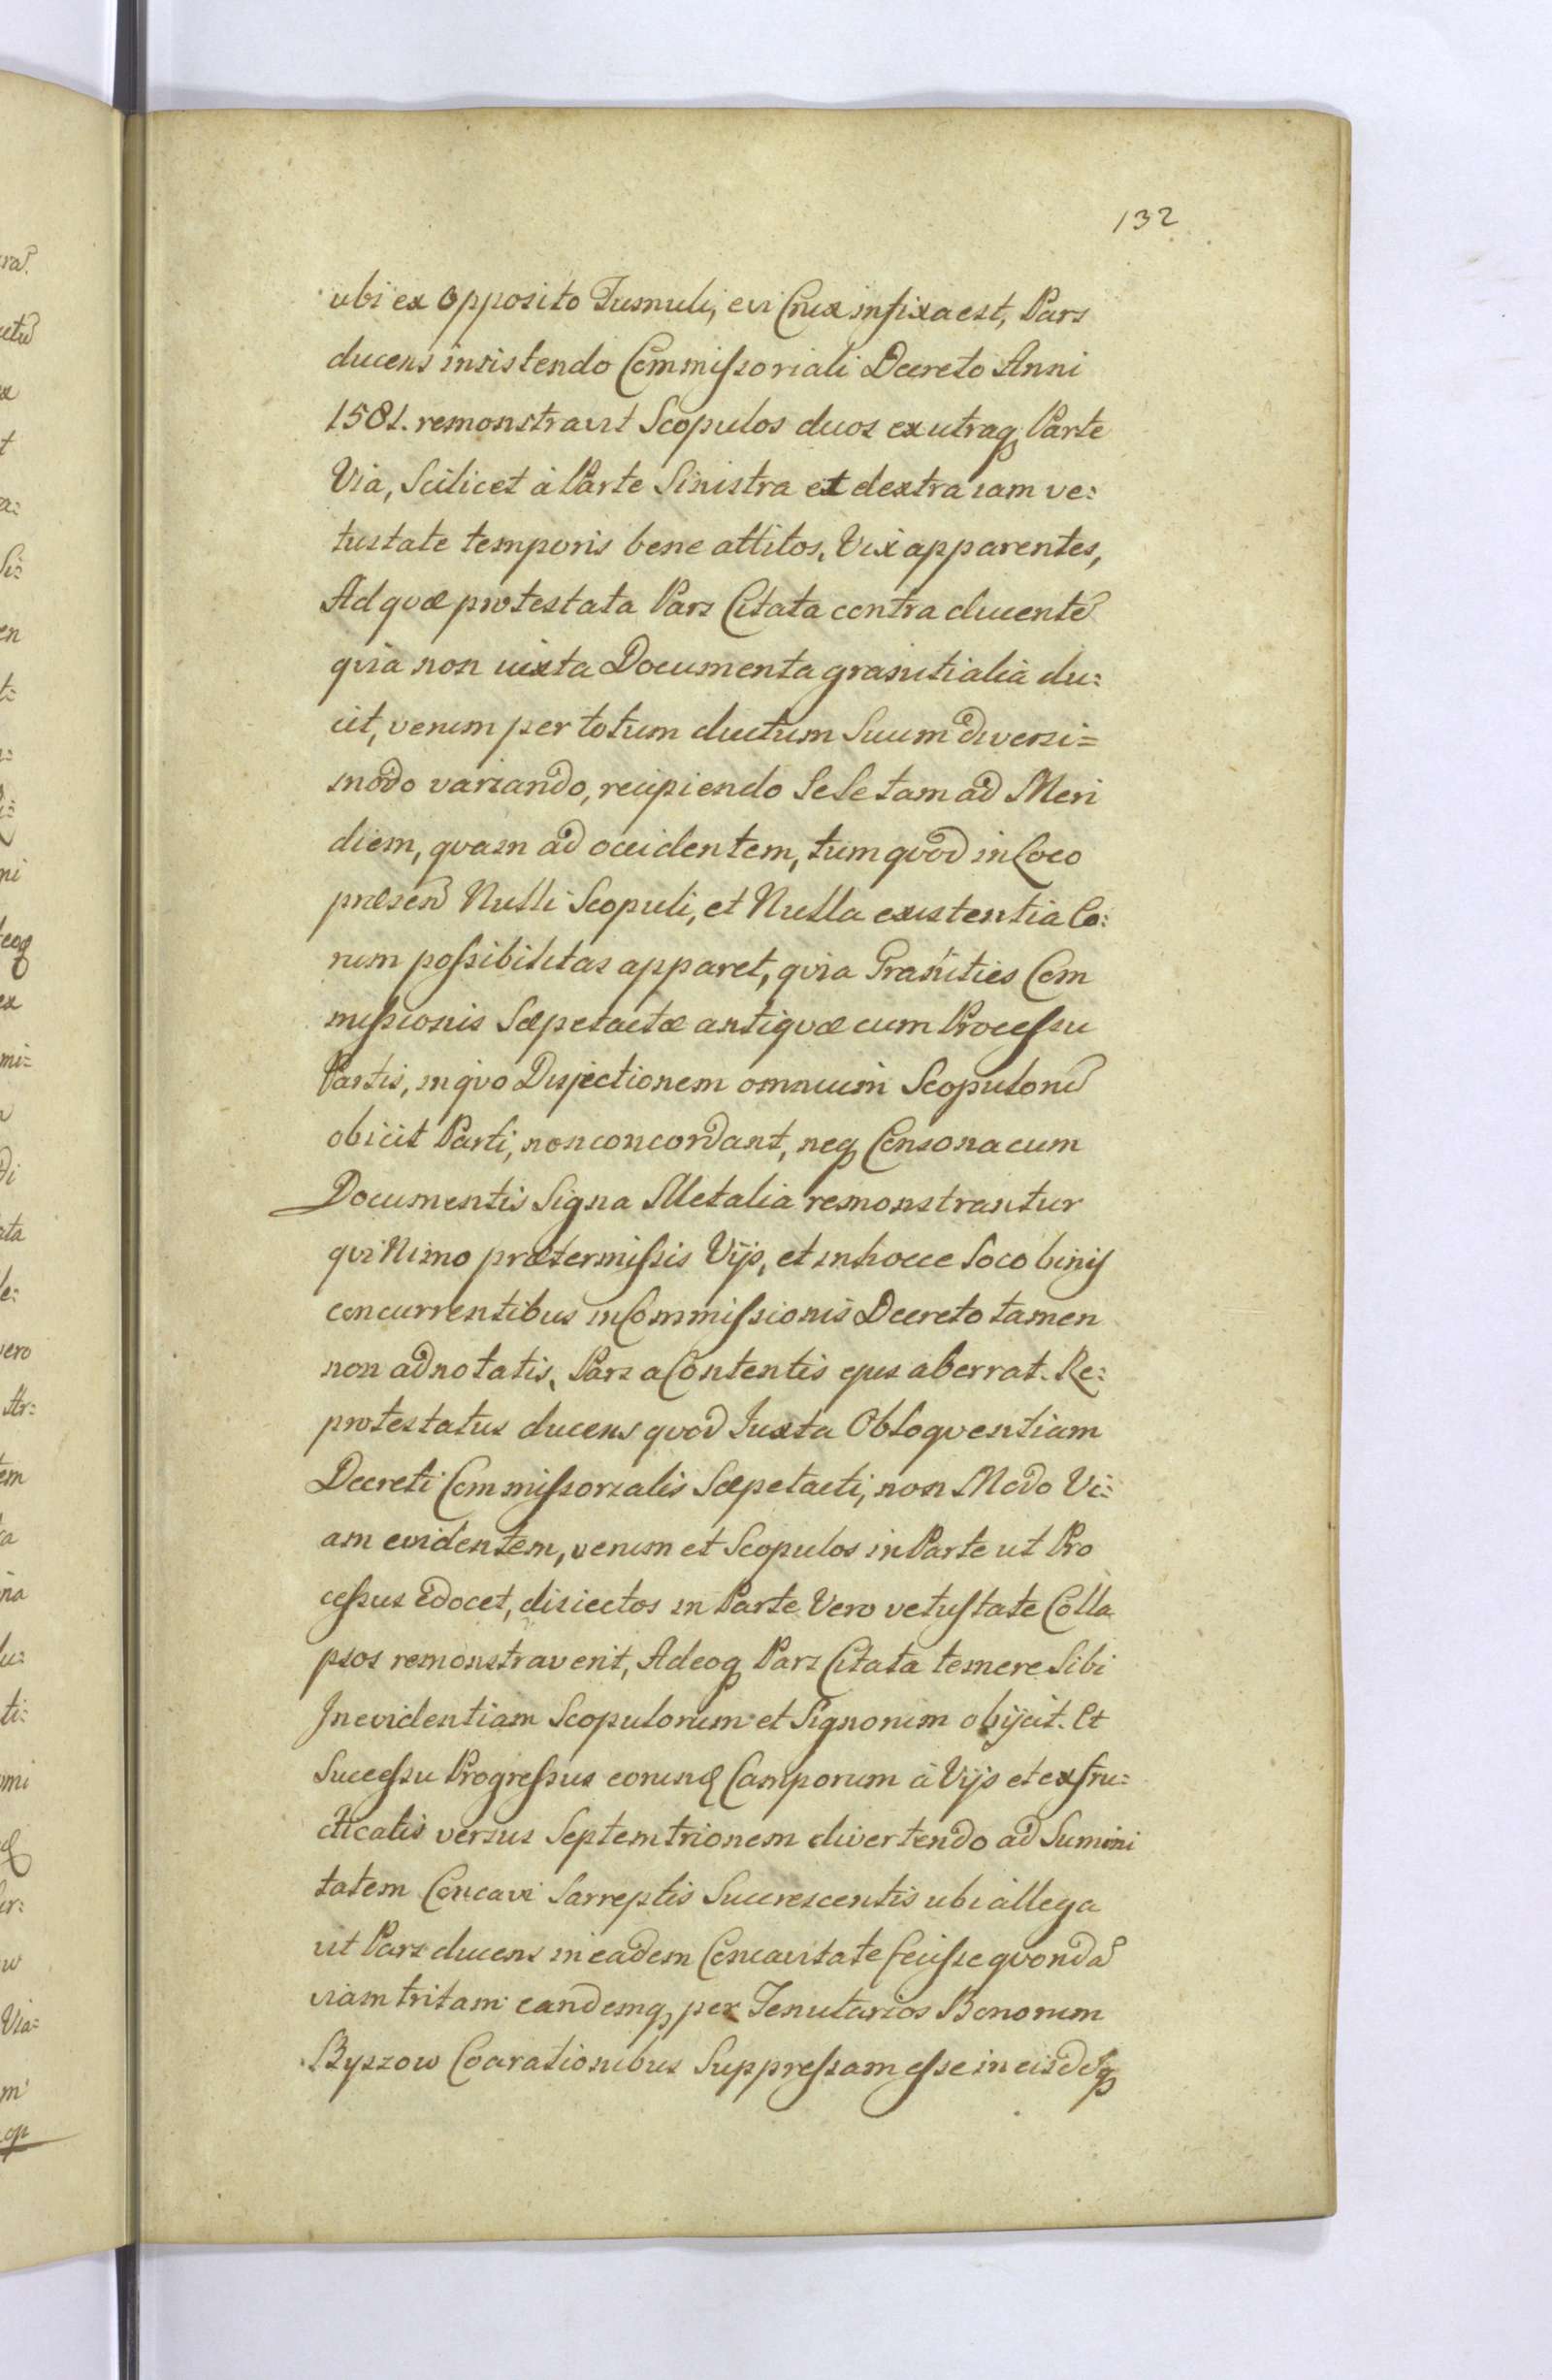 132
ubi ex Opposito Tumuli, cui Crux infixa est, Pars
ducens insistendo Commissoriali Decreto Anni
1581. remonstravit Scopulos duos ex utraq Parte
Via, Scilicet à Parte Sinistra et dextra iam ve:
tustate temporis bene attitos, Vix apparentes,
Ad quæ protestata Pars Citata contra ducente
quia non iuxta Documenta granitialia du:
cit, verum per totum ductum Suum diversi=
modo variando, recipiendo Se Se tam ad Meri
diem, quam ad occidentem, tum quod in Loco
præsen Nulli Scopuli, et Nulla existentia Eo:
rum possibilitas apparet, quia Granities Com
missionis Sæpetactæ antiquæ cum Processu
Partis, in quo Disjectionem omnium Scopuloru
obicit Parti, non concordant, neq Consona cum
Documentis Signa Metalia remonstrantur
qui Nimo prætermissis Vijs, et in hocce Loco binis
concurrentibus in Commissionis Decreto tamen
non adnotatis, Pars a Contentis ejus aberrat. Re:
protestatus ducens quod Iuxta Obloquentiam
Decreti Commissorialis Sæpetacti, non Modo Vi:
am evidentem, verum et Scopulos in Parte ut Pro
cessus edocet, disiectos in Parte Vero vetustate Colla
psos remonstraverit, Adeoq Pars Citata temere Sibi
Inevidentiam Scopulorum et Signorum obijcit. Et
Successu Progressus eorund Camporum à Vijs et ex fru:
cticatis versus Septemtrionem divertendo ad Summi
tatem Concavi Sarreptis Succrescentis ubi allega
vit Pars ducens in eadem Concavitate fuisse quonda
viam tritam eandemq, per Tenutarios Bonorum
Byszow Coarationibus Suppressam esse in eisdq